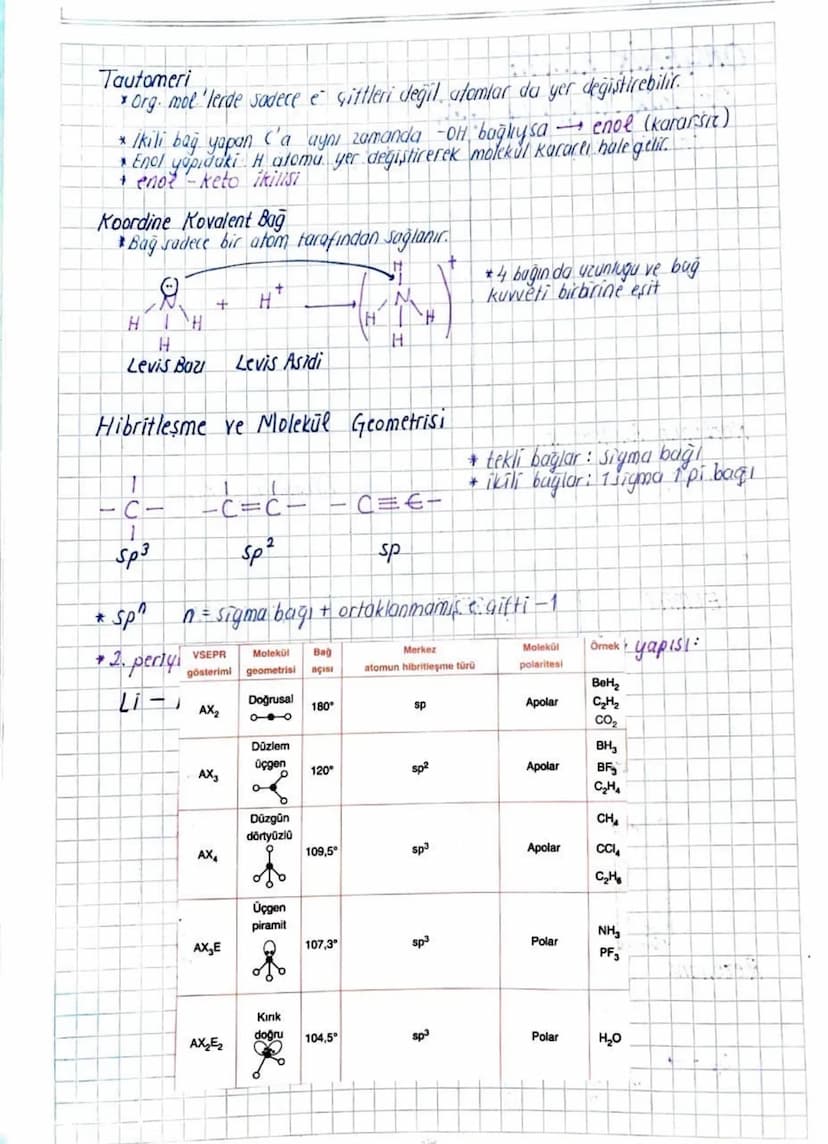 Tautomeri
* Org. mol'lerde sadece e⁻ çiftleri değil atomlar da yer değiştirebilir.
* İkili bağ yapan C'a aynı zamanda -OH bağlıysa → enol (kararsız)
* Enol yapıdaki H atomu yer değiştirerek molekül kararlı hale gelir.
* enol - keto ikilisi
Koordine Kovalent Bağ
* Bağ sadece bir atom tarafından sağlanır.
N H H H + H⁺ → (H N H H H)⁺
* 4 bağında uzunluğu ve bağ
kuvveti birbirine eşit
Levis Bazı Levis Asidi
Hibritleşme ve Molekül Geometrisi
* tekli bağlar : sigma bağı
* ikili bağlar : 1 sigma 1 pi bağı
-C- -C=C- -C≡C-
sp³ sp² sp
* spⁿ n = sigma bağı + ortaklanmamış e çifti -1
* 2. periy yapısı :
Li -
VSEPR gösterimi Molekül geometrisi Bağ açısı Merkez atomun hibritleşme türü Molekül polaritesi Örnek
AX₂ Doğrusal 180° sp Apolar BeH₂ C₂H₂ CO₂
AX₃ Düzlem üçgen 120° sp² Apolar BH₃ BF₃ C₂H₄
AX₄ Düzgün dörtyüzlü 109,5° sp³ Apolar CH₄ CCl₄ C₂H₆
AX₃E Üçgen piramit 107,3° sp³ Polar NH₃ PF₃
AX₂E₂ Kırık doğru 104,5° sp³ Polar H₂O